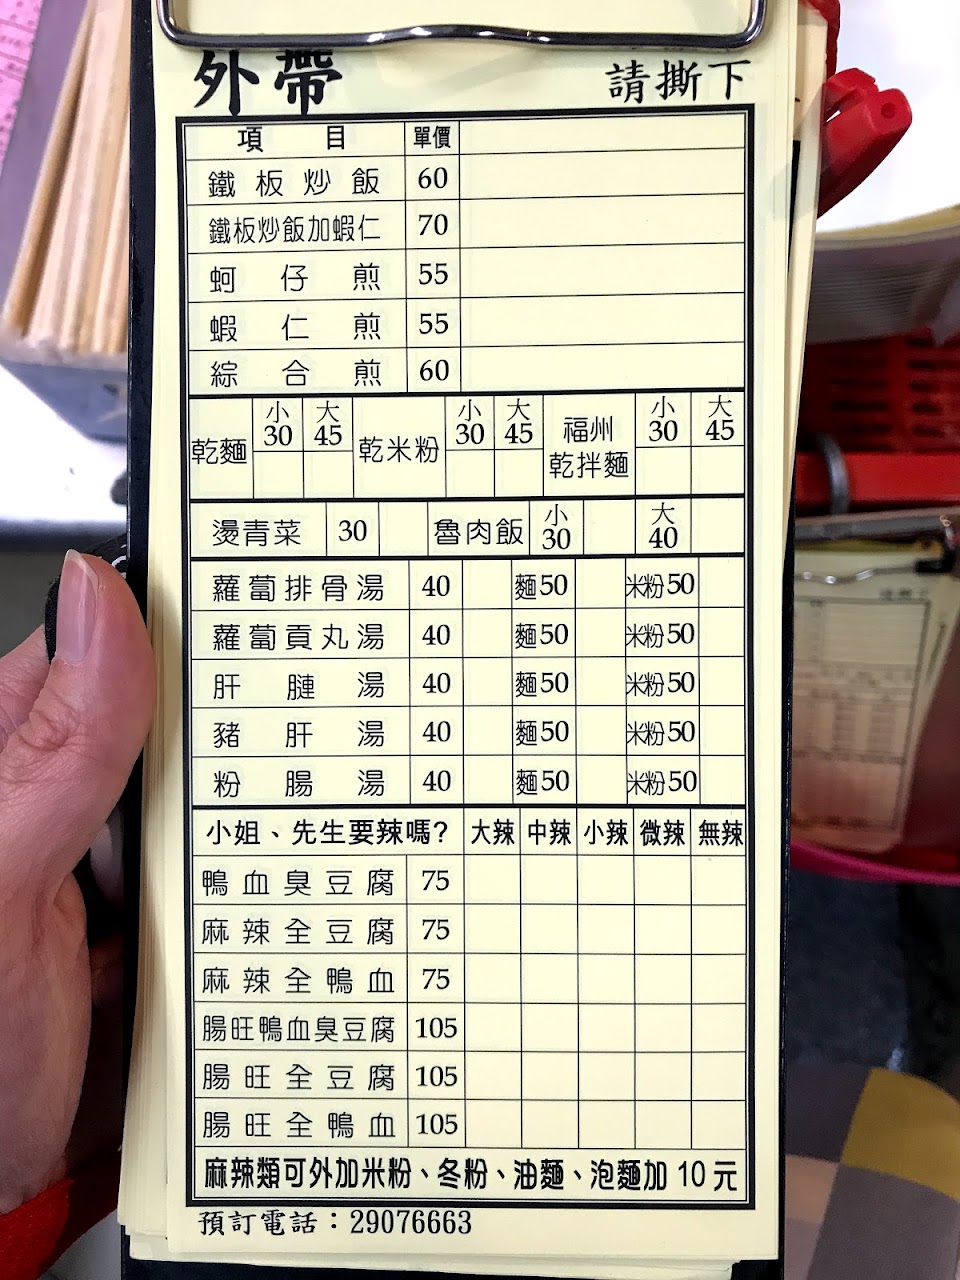 外帶 請撕下
項目 單價
鐵板炒飯 60
鐵板炒飯加蝦仁 70
蚵仔煎 55
蝦仁煎 55
綜合煎 60
乾麵 小30 大45 乾米粉 小30 大45 福州乾拌麵 小30 大45
燙青菜 30 魯肉飯 小30 大40
蘿蔔排骨湯 40 麵50 米粉50
蘿蔔貢丸湯 40 麵50 米粉50
肝腱湯 40 麵50 米粉50
豬肝湯 40 麵50 米粉50
粉腸湯 40 麵50 米粉50
小姐、先生要辣嗎? 大辣 中辣 小辣 微辣 無辣
鴨血臭豆腐 75
麻辣全豆腐 75
麻辣全鴨血 75
腸旺鴨血臭豆腐 105
腸旺全豆腐 105
腸旺全鴨血 105
麻辣類可外加米粉、冬粉、油麵、泡麵加 10 元
預訂電話：29076663